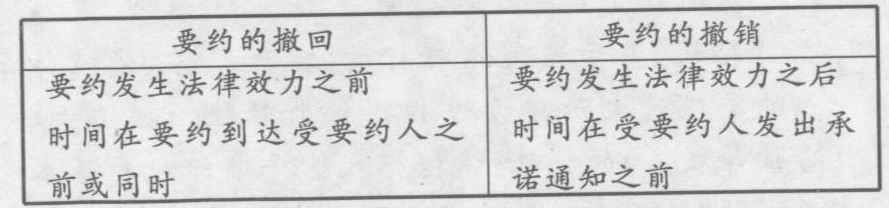 要约的撤回
要约的撤销
要约发生法律效力之前
时间在要约到达受要约人之
前或同时
要约发生法律效力之后
时间在受要约人发出承
诺通知之前